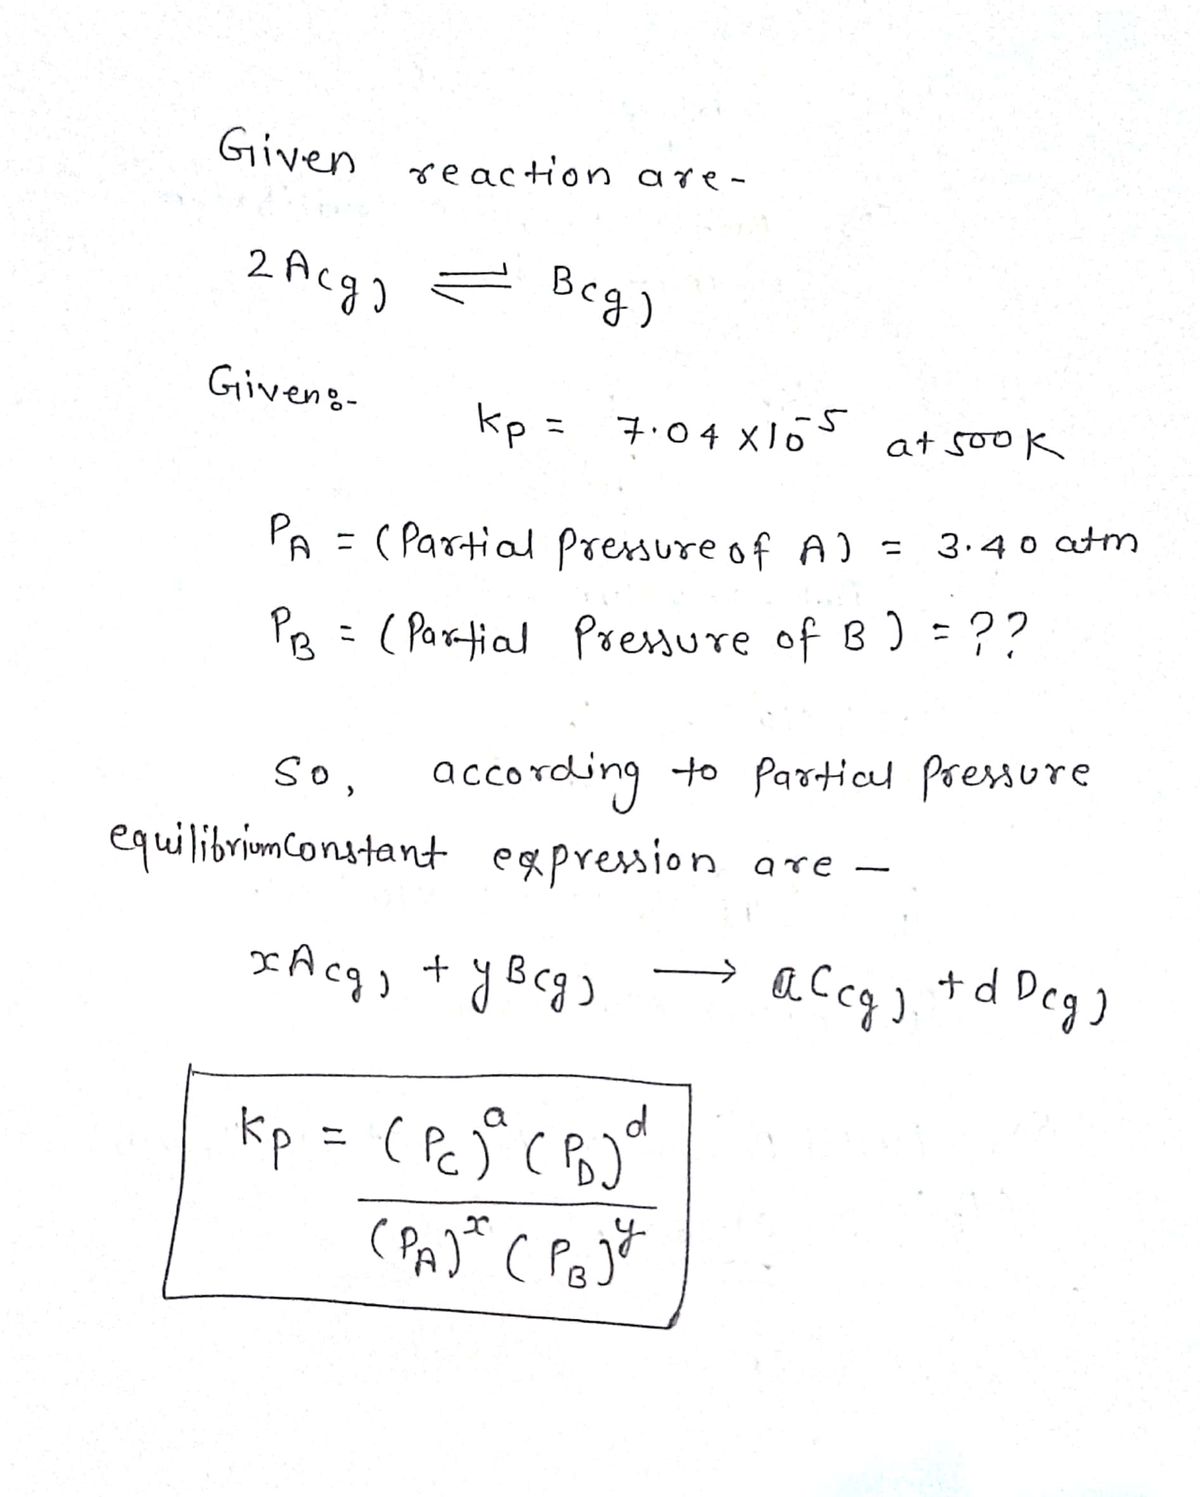 Given reaction are-
2A(g) ⇌ B(g)
Given:-
Kp = 7.04 × 10⁻⁵ at 500 K
P_A = (Partial Pressure of A) = 3.40 atm
P_B = (Partial Pressure of B) = ??
So, according to Partial Pressure
equilibrium Constant expression are —
xA(g) + yB(g) ⟶ aC(g) + dD(g)
Kp = (P_C)^a (P_D)^d
(P_A)^x (P_B)^y